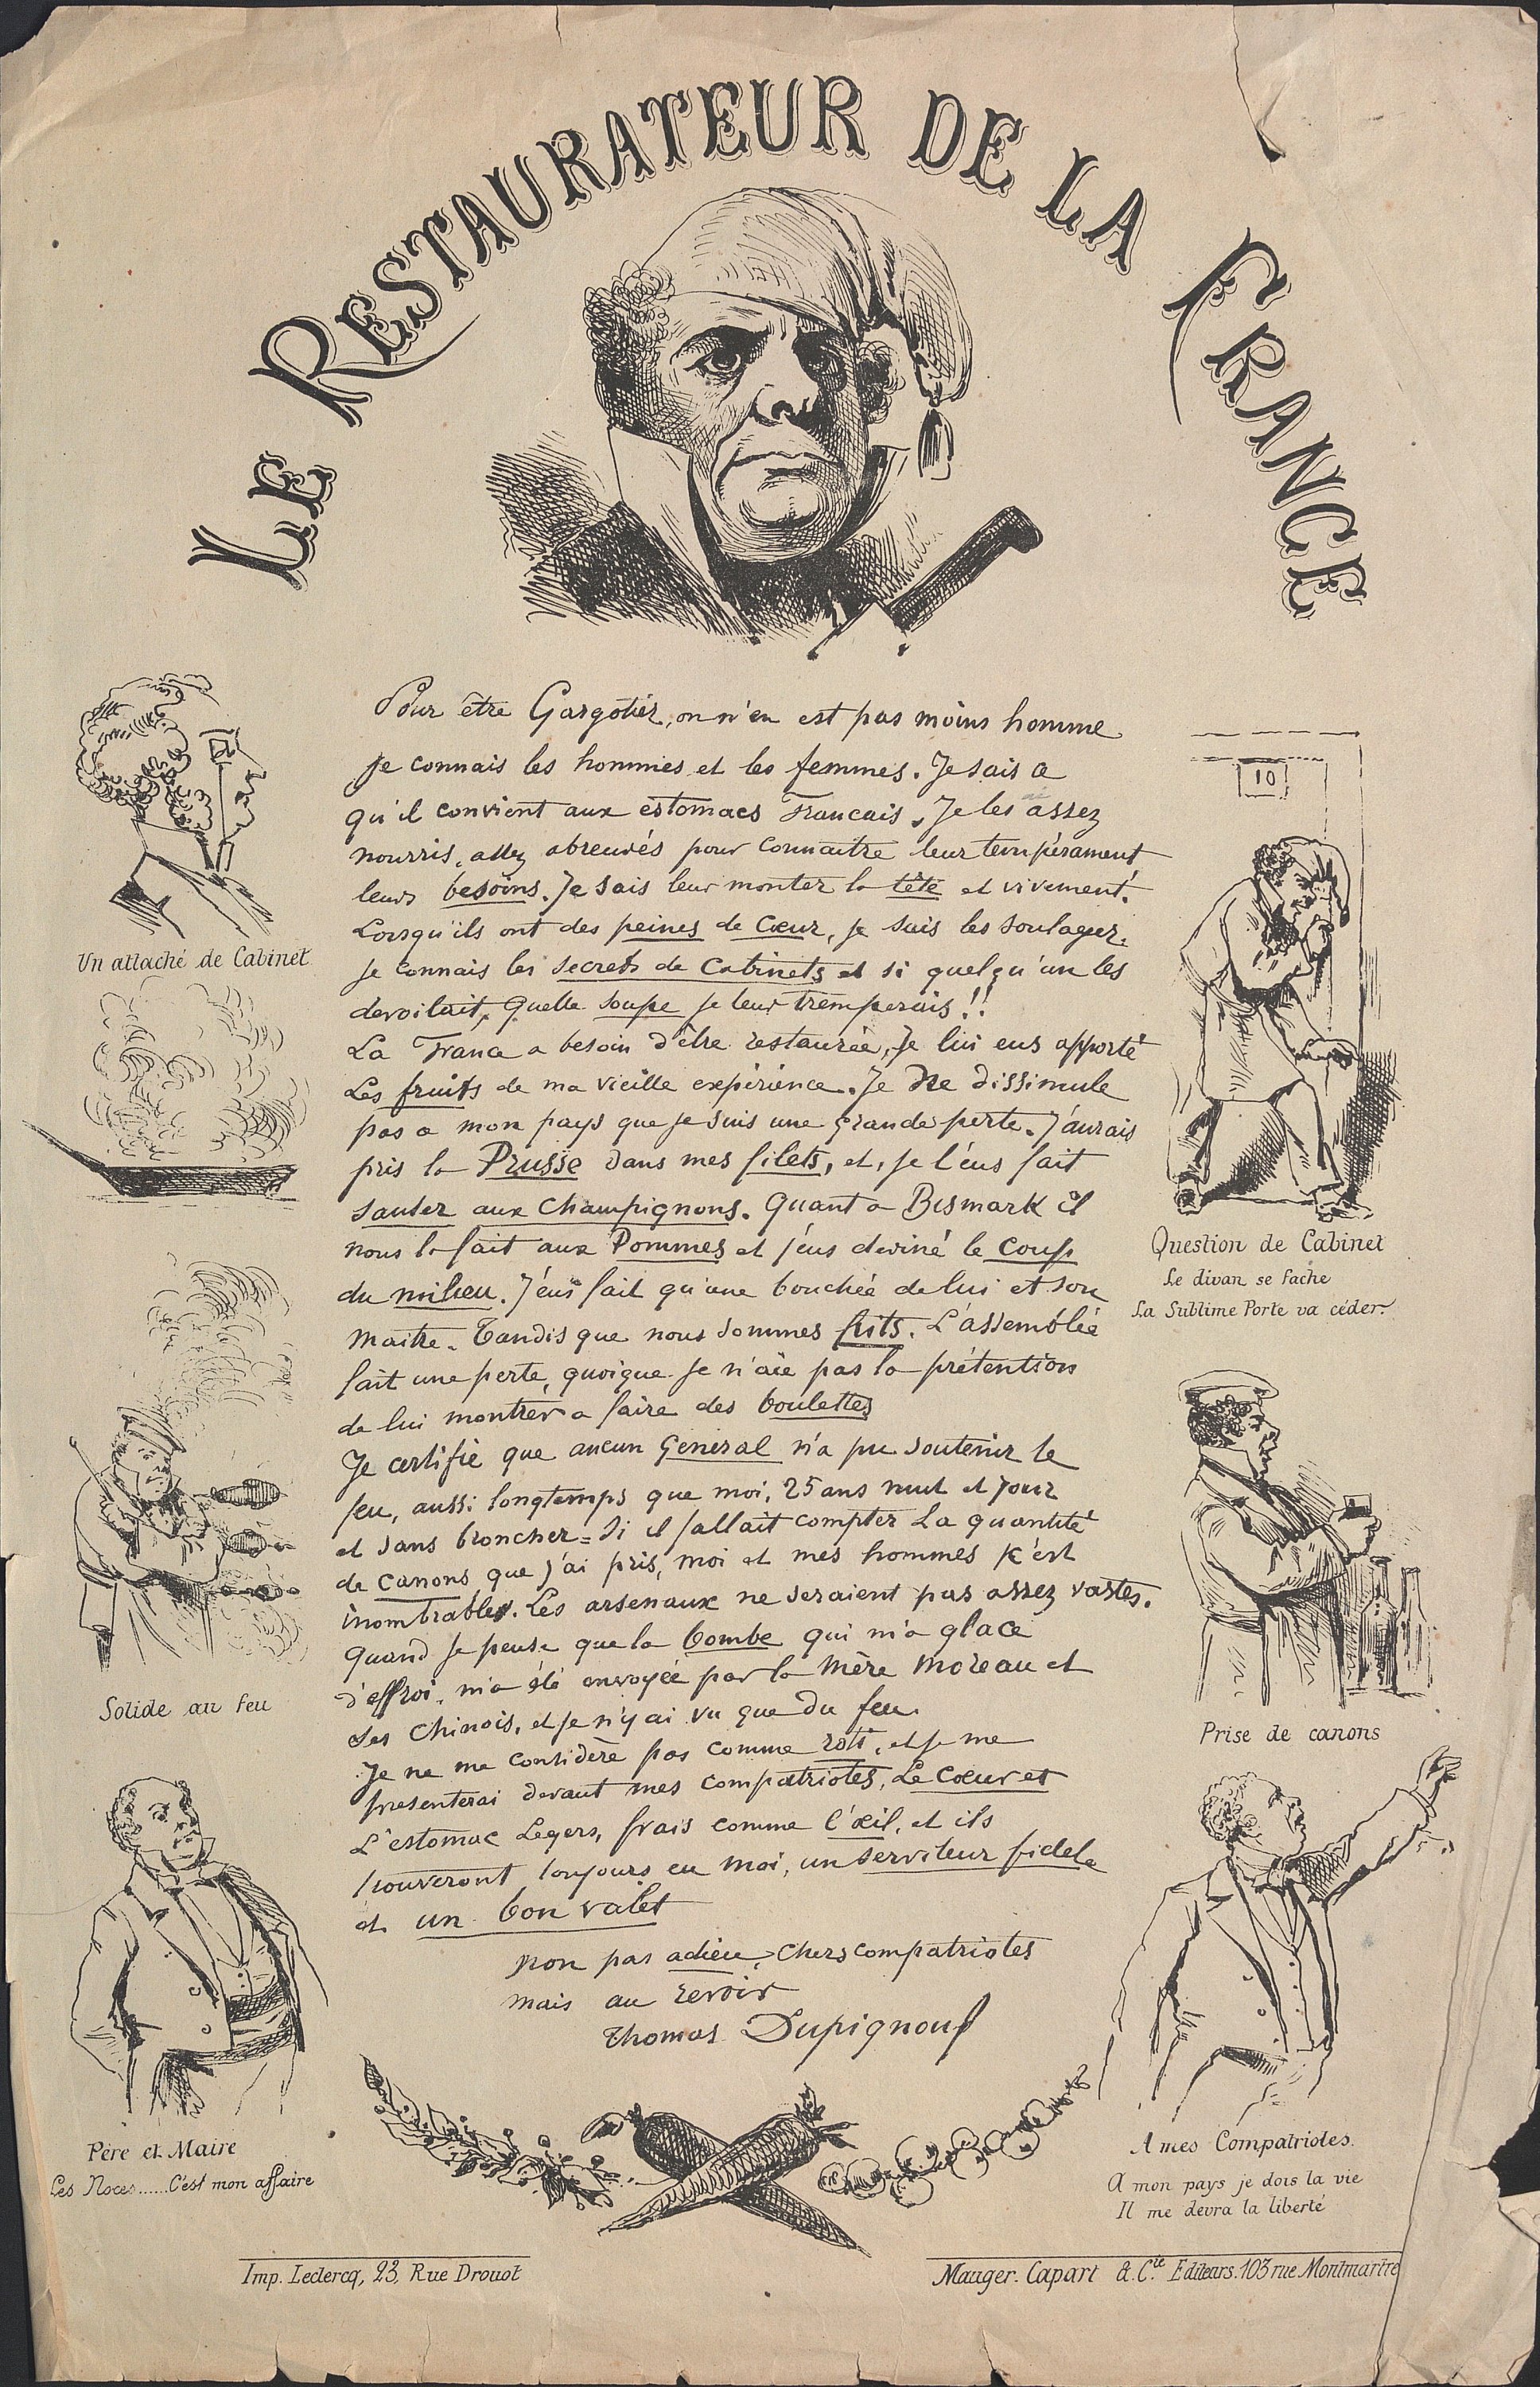 LE RESTAURATEUR DE LA FRANCE
Pour être Gargotier, on n'en est pas moins homme
je connais les hommes et les femmes. Je sais ce
qu'il convient aux estomacs Francais. Je les assez
nourris, assez abreuvés pour connaitre leur tempérament
leurs besoins. Je sais leur monter la tête et vivement.
Lorsqu'ils ont des peines de Cœur, je sais les soulager.
Je connais les secrets de Cabinets et si quelqu'un les
devoilait, quelle soupe je leur tremperais!!
La France a besoin d'être restaurée, Je lui eus apporté
Les fruits de ma vieille expérience. Je ne dissimule
pas a mon pays que je suis une grande perte. J'aurais
pris la Prusse dans mes filets, et, je l'eus fait
sauter aux Champignons. Quant a Bismark il
nous la fait aux Pommes et j'eus deviné le coup
du milieu. J'eus fait qu'une bouchée de lui et son
maitre. Tandis que nous sommes frits. L'assemblée
fait une perte, quoique je n'aie pas la prétention
de lui montrer a faire des boulettes
Je certifie que aucun General n'a pu soutenir le
feu, aussi longtemps que moi, 25 ans nuit et jour
et sans broncher = Si il fallait compter La quantité
de canons que j'ai pris, moi et mes hommes c'est
inombrables. Les arsenaux ne seraient pas assez vastes.
Quand je pense que la bombe qui m'a glacé
d'effroi, m'a été envoyée par la Mère Moreau et
Ses Chinois, et je n'y ai vu que du feu.
Je ne me considère pas comme roti, et je me
presenterai devant mes compatriotes, Le Cœur et
L'estomac Legers, frais comme l'œil, et ils
trouveront toujours en moi, un serviteur fidele
et un bon valet
Non pas adieu, Chers compatriotes
mais au revoir
Thomas Dupignouf
Un attaché de Cabinet
Solide au feu
Père et Maire
Les Noces......C'est mon affaire
10
Question de Cabinet
Le divan se fache
La Sublime Porte va céder.
Prise de canons
A mes Compatriotes.
A mon pays je dois la vie
Il me devra la liberté
Imp. Leclercq, 23, Rue Drouot
Mauger. Capart & Cie. Editeurs. 103 rue Montmartre